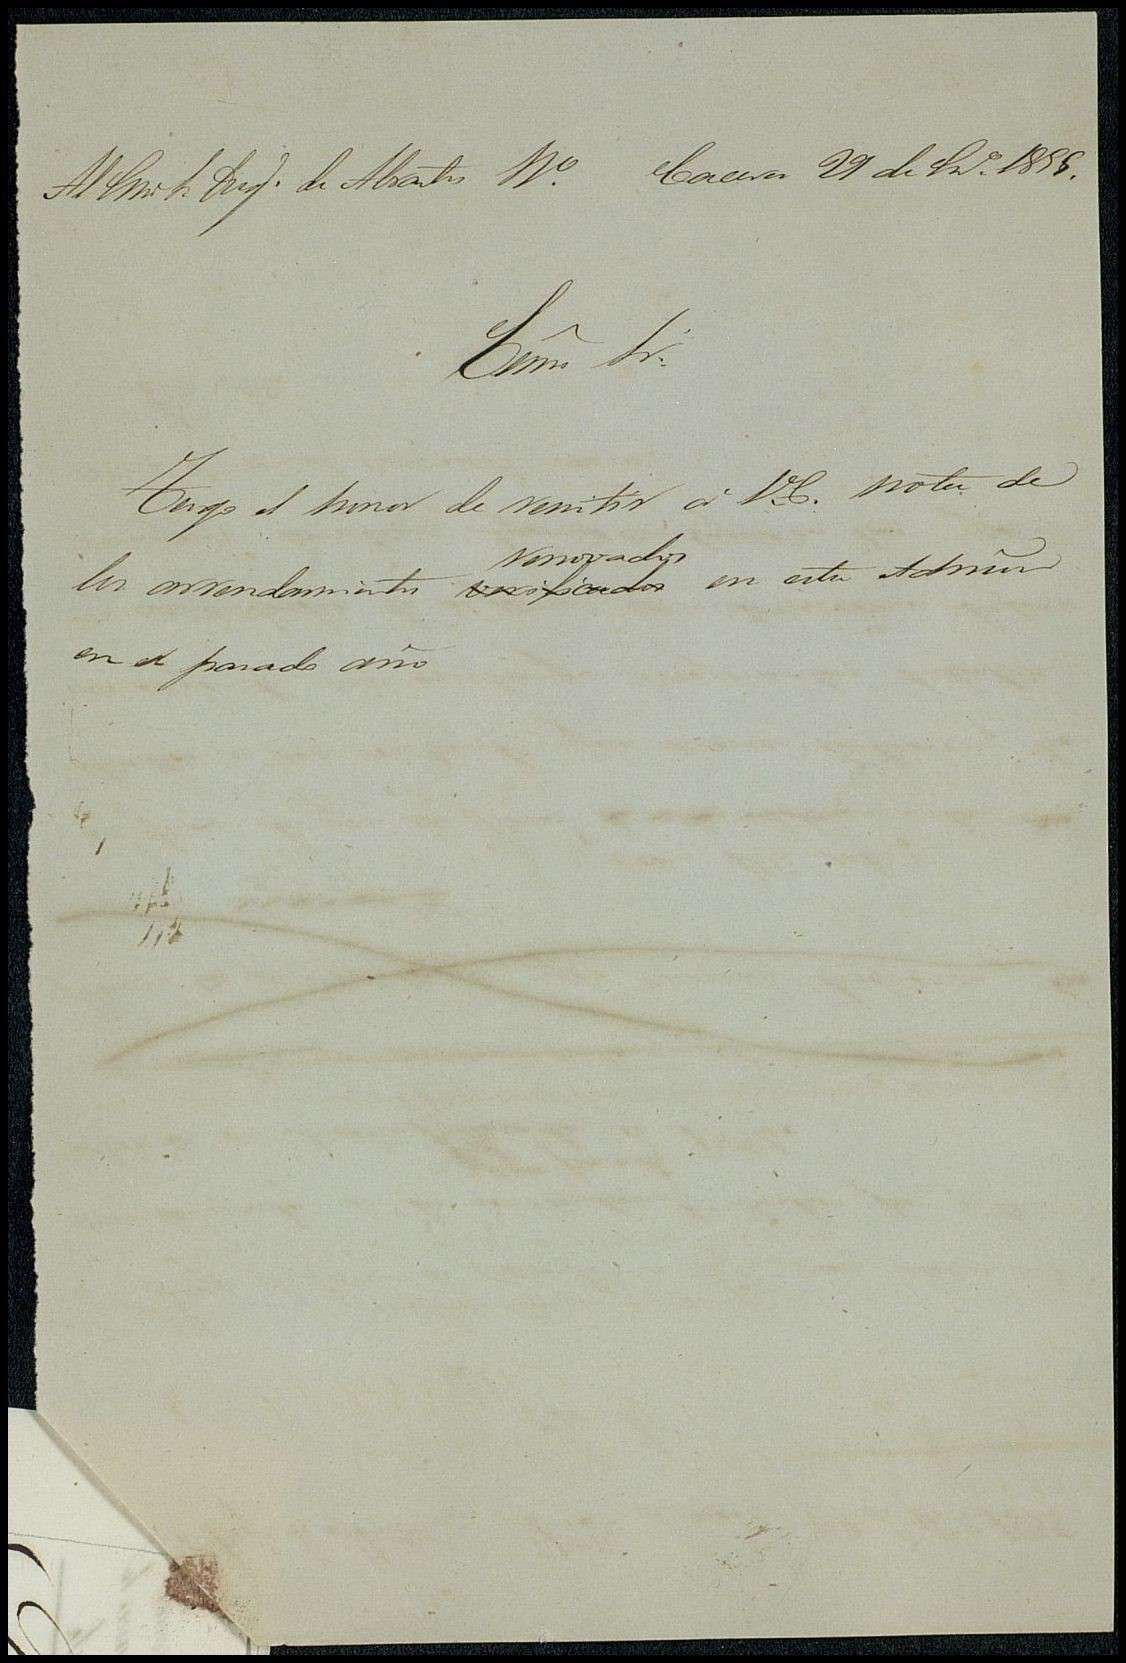 Al Exmo Sr Duq.e de Abrantes Mo. Caceres 29 de En.o 1856.
Exmo Sr.
Tengo el honor de remitir á V.E. nota de
renovados
los arrendamientos verificados en esta Admon
en el pasado año